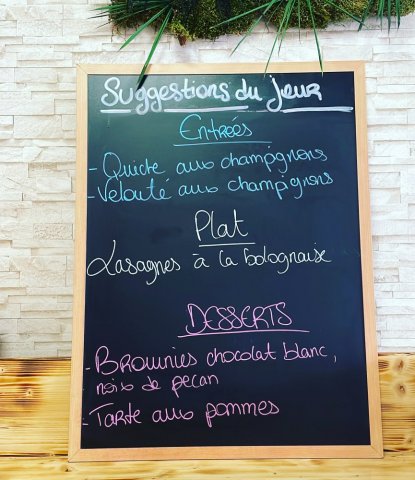 Suggestions du jour
Entrées
- Quiche aux champignons
- Velouté aux champignons
Plat
Lasagnes à la bolognaise
DESSERTS
- Brownies chocolat blanc,
noix de pecan
- Tarte aux pommes